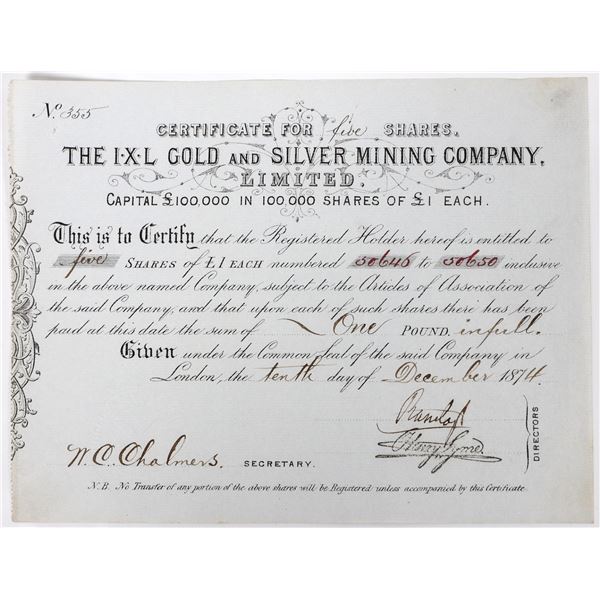 No. 355
CERTIFICATE FOR five SHARES.
THE I·X·L GOLD AND SILVER MINING COMPANY,
LIMITED.
CAPITAL £100,000 IN 100,000 SHARES OF £1 EACH.
This is to Certify that the Registered Holder hereof is entitled to
five SHARES OF £1 EACH numbered 50646 to 50650 inclusive
in the above named Company, subject to the Articles of Association of
the said Company, and that upon each of such shares there has been
paid at this date the sum of One POUND in full.
Given under the Common Seal of the said Company in
London, the tenth day of December 1874.
DIRECTORS
W. C. Chalmers. SECRETARY.
N.B. No Transfer of any portion of the above shares will be Registered unless accompanied by this Certificate.